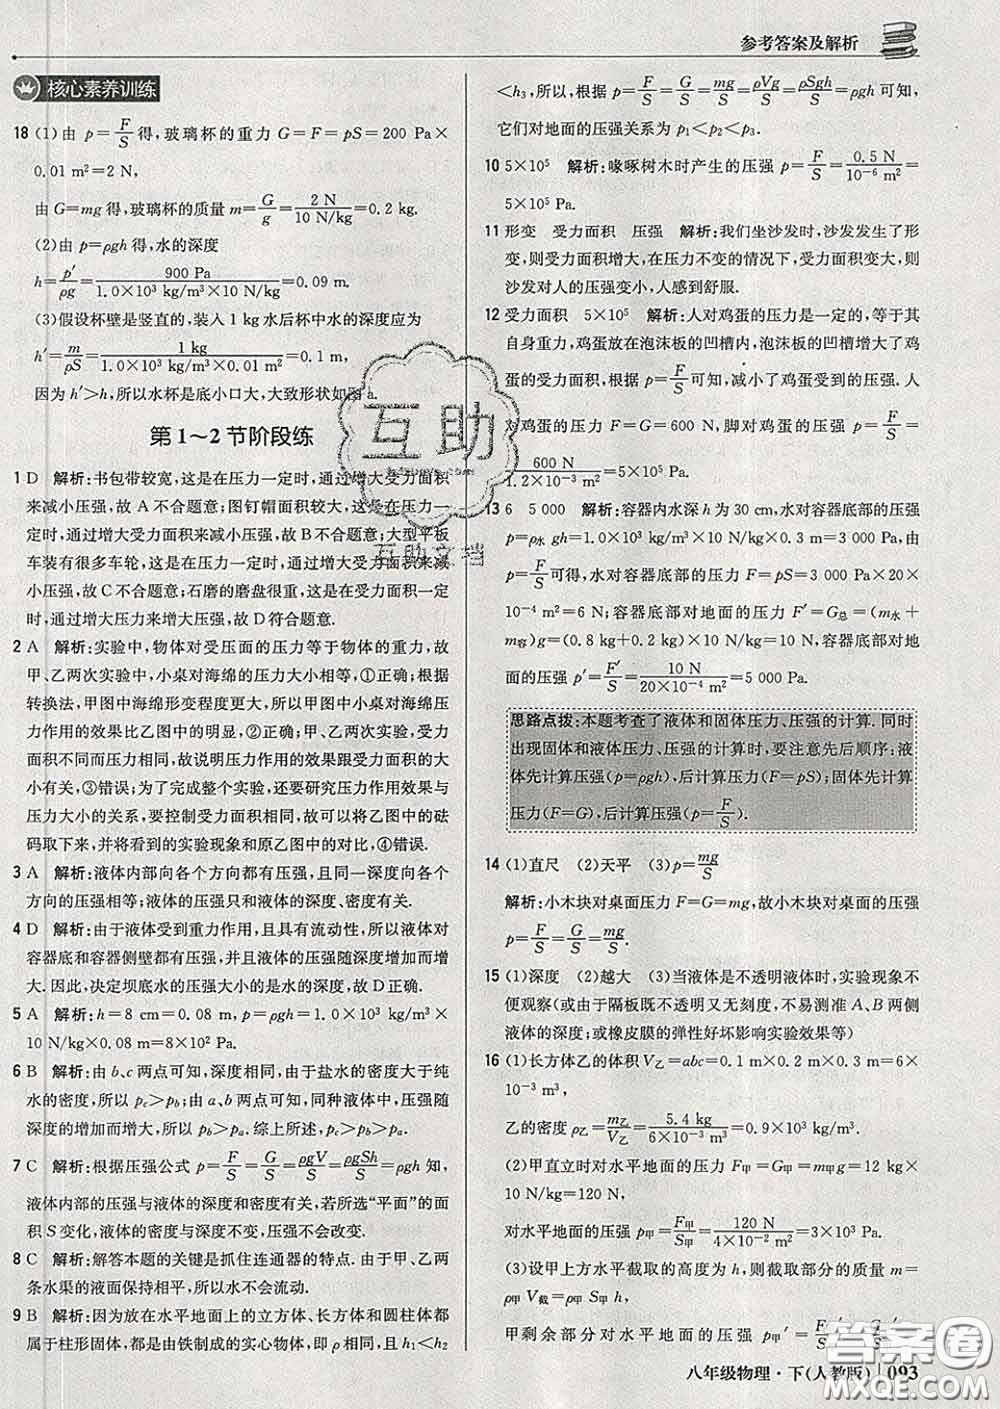 参考答案及解析
核心素养训练
18 (1)由 p=F/S 得,玻璃杯的重力 G=F=pS=200 Pa×
0.01 m²=2 N,
由 G=mg 得,玻璃杯的质量 m=G/g=2 N/10 N/kg=0.2 kg.
(2)由 p=ρgh 得,水的深度
h=p′/ρg=900 Pa/1.0×10³ kg/m³×10 N/kg=0.09 m.
(3)假设杯壁是竖直的,装入 1 kg 水后杯中水的深度应为
h′=m/ρS=1 kg/1.0×10³ kg/m³×0.01 m²=0.1 m,
因为 h′>h,所以水杯是底小口大,大致形状如图 a.
第 1～2 节阶段练
1 D 解析:书包带较宽,这是在压力一定时,通过增大受力面积
来减小压强,故 A 不合题意;图钉帽面积较大,这是在压力一
定时,通过增大受力面积来减小压强,故 B 不合题意;大型平板
车装有很多车轮,这是在压力一定时,通过增大受力面积来减
小压强,故 C 不合题意;石磨的磨盘很重,这是在受力面积一定
时,通过增大压力来增大压强,故 D 符合题意.
2 A 解析:实验中,物体对受压面的压力等于物体的重力,故
甲、乙两次实验中,小桌对海绵的压力大小相等,①正确;根据
转换法,甲图中海绵形变程度更大,所以甲图中小桌对海绵压
力作用的效果比乙图中的明显,②正确;甲、乙两次实验,受力
面积不同而压力相同,故说明压力作用的效果跟受力面积的大
小有关,③错误;为了完成整个实验,还要研究压力作用效果与
压力大小的关系,要控制受力面积相同,故可以将乙图中的砝
码取下来,并将新的实验现象和原乙图中的对比,④错误.
3 A 解析:液体内部向各个方向都有压强;同一深度向各个
方向的压强相等;液体的压强只和液体的深度、密度有关.
4 D 解析:由于液体受到重力作用,且具有流动性,所以液体对
容器底和容器侧壁都有压强,并且液体的压强随深度增加而增
大.因此,决定坝底水的压强大小的是水的深度,故 D 正确.
5 A 解析:h=8 cm=0.08 m,p=ρgh=1.0×10³ kg/m³×
10 N/kg×0.08 m=8×10² Pa.
6 B 解析:由 b、c 两点可知,深度相同,由于盐水的密度大于纯
水的密度,所以 pc>pb;由 a、b 两点可知,同种液体中,压强随
深度的增加而增大,所以 pb>pa.综上所述,pc>pb>pa.
7 C 解析:根据压强公式 p=F/S=G/S=ρgV/S=ρgSh/S=ρgh 知,
液体内部的压强与液体的深度和密度有关,若所选“平面”的面
积 S 变化,液体的密度与深度不变,压强不会改变.
8 C 解析:解答本题的关键是抓住连通器的特点.由于甲、乙两
条水渠的液面保持相平,所以水不会流动.
9 B 解析:因为放在水平地面上的立方体、长方体和圆柱体都
属于柱形固体,都是由铁制成的实心物体,即 ρ 相同,且 h₁<h₂
<h₃,所以,根据 p=F/S=G/S=mg/S=ρVg/S=ρSgh/S=ρgh 可知,
它们对地面的压强关系为 p₁<p₂<p₃.
10 5×10⁵ 解析:喙啄树木时产生的压强 p=F/S=0.5 N/10⁻⁶ m²=
5×10⁵ Pa.
11 形变 受力面积 压强 解析:我们坐沙发时,沙发发生了形
变,则受力面积增大,在压力不变的情况下,受力面积变大,则
沙发对人的压强变小,人感到舒服.
12 受力面积 5×10⁵ 解析:人对鸡蛋的压力是一定的,等于其
自身重力,鸡蛋放在泡沫板的凹槽内,泡沫板的凹槽增大了鸡
蛋的受力面积,根据 p=F/S 可知,减小了鸡蛋受到的压强.人
对鸡蛋的压力 F=G=600 N,脚对鸡蛋的压强 p=F/S=
600 N/1.2×10⁻³ m²=5×10⁵ Pa.
13 6 5 000 解析:容器内水深 h 为 30 cm,水对容器底部的压强
p=ρ水 gh=1.0×10³ kg/m³×10 N/kg×0.3 m=3 000 Pa,由
p=F/S可得,水对容器底部的压力 F=pS=3 000 Pa×20
×10⁻⁴ m²=6 N;容器底部对地面的压力 F′=G总=(m水+
m容)g=(0.8 kg+0.2 kg)×10 N/kg=10 N,容器底部对地
面的压强 p′=F′/S=10 N/20×10⁻⁴ m²=5 000 Pa.
思路点拨:本题考查了液体和固体压力、压强的计算.同时
出现固体和液体压力、压强的计算时,要注意先后顺序:液
体先计算压强(p=ρgh),后计算压力(F=pS);固体先计算
压力(F=G),后计算压强(p=F/S).
14 (1)直尺 (2)天平 (3)p=mg/S
解析:小木块对桌面压力 F=G=mg,故小木块对桌面的压强
p=F/S=G/S=mg/S.
15 (1)深度 (2)越大 (3)当液体是不透明液体时,实验现象不
便观察(或由于隔板既不透明又无刻度,不易测准 A、B 两侧
液体的深度;或橡皮膜的弹性好坏影响实验效果等)
16 (1)长方体乙的体积 V乙=abc=0.1 m×0.2 m×0.3 m=6×
10⁻³ m³,
乙的密度 ρ乙=m乙/V乙=5.4 kg/6×10⁻³ m³=0.9×10³ kg/m³.
(2)甲直立时对水平地面的压力 F甲=G甲=m甲g=12 kg×10
N/kg=120 N,
对水平地面的压强 p甲=F甲/S甲=120 N/4×10⁻² m²=3×10³ Pa.
(3)设甲上方水平截取的高度为 h,则截取部分的质量 m=
ρ甲 V截=ρ甲 S甲 h,
甲剩余部分对水平地面的压强 p甲′=F甲′/S甲=
八年级物理·下(人教版) 093
互助
互助文档
答案圈
MXQE.COM